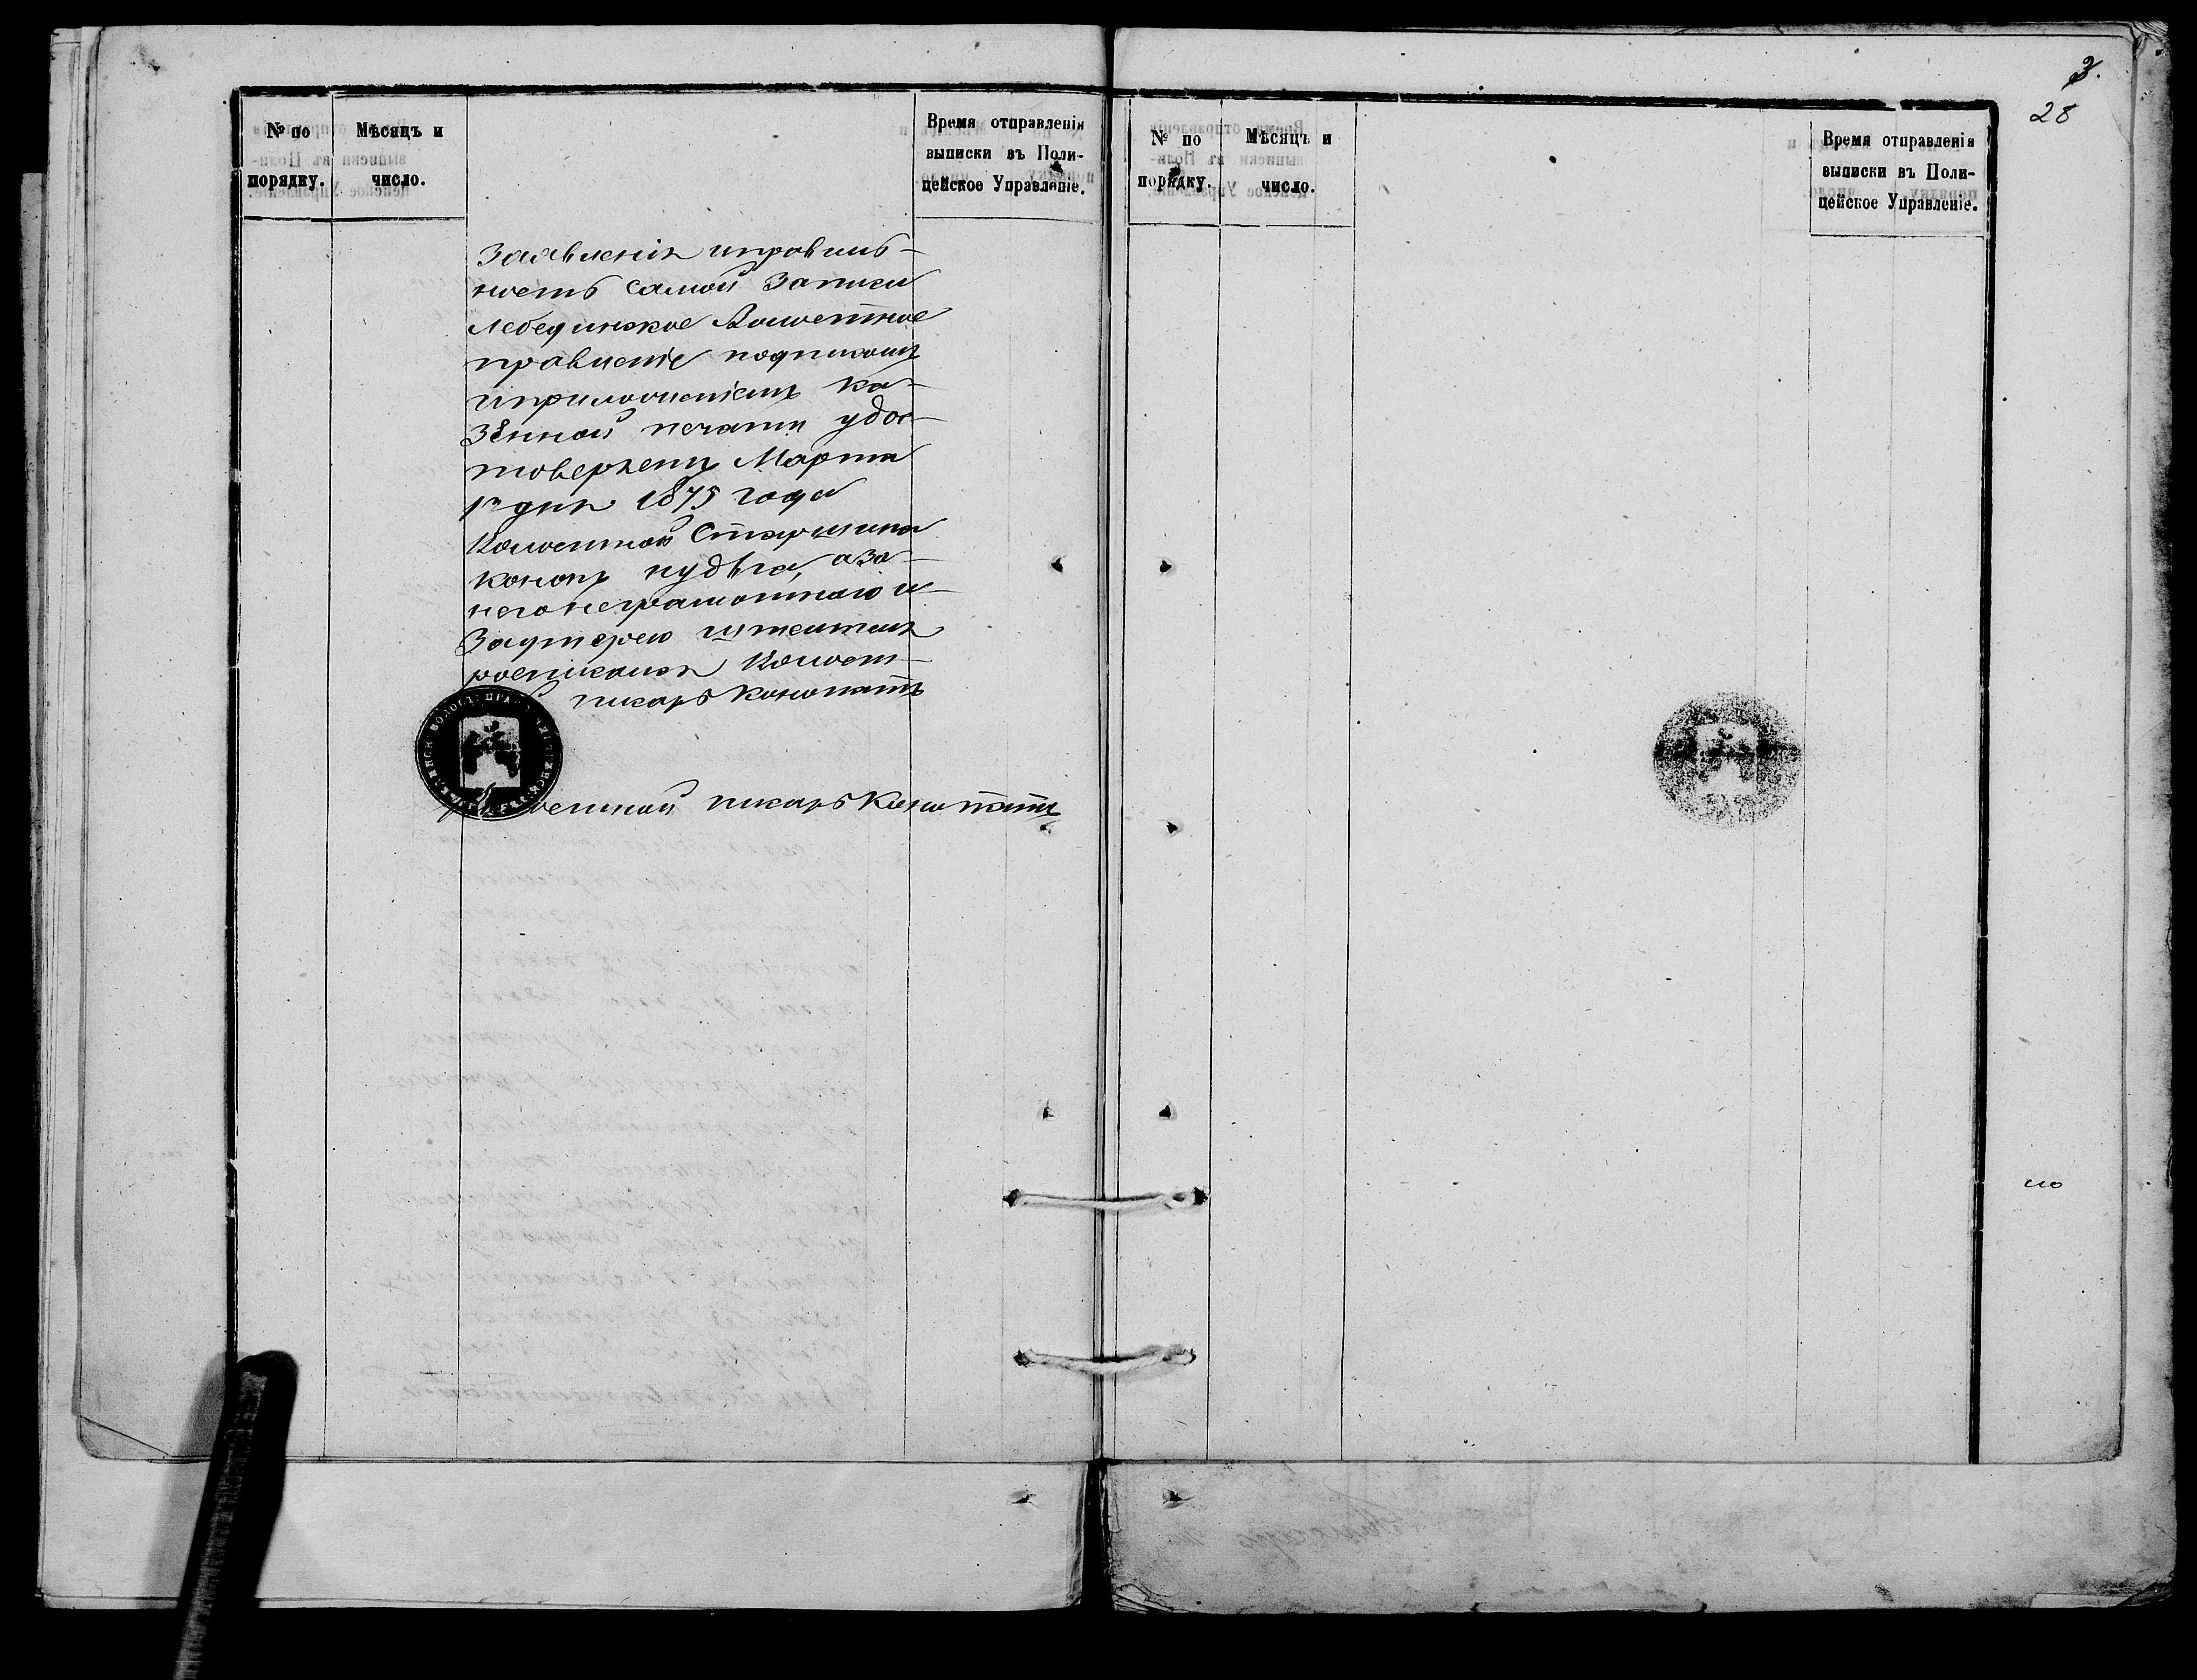 № по
порядку.
Мѣсяцъ и
число.
Время отправленія
выписки въ Поли-
цейское Управленіе.
Заявленія иправиль-
ность самой записи
Лебединское Волостное
правленіе подписомъ
иприложеніемъ ка-
зѣнной печати удос-
товеряетъ Марта
1го дня 1875 года
Волостной Старшина
кононъ кудѣга, аза
него неграмотного и
росписался Волост-
писарь Конопать
Волостной писарь Конопатъ
3.
28
№ по
порядку.
Мѣсяцъ и
число.
Время отправленія
выписки въ Поли-
цейское Управленіе.